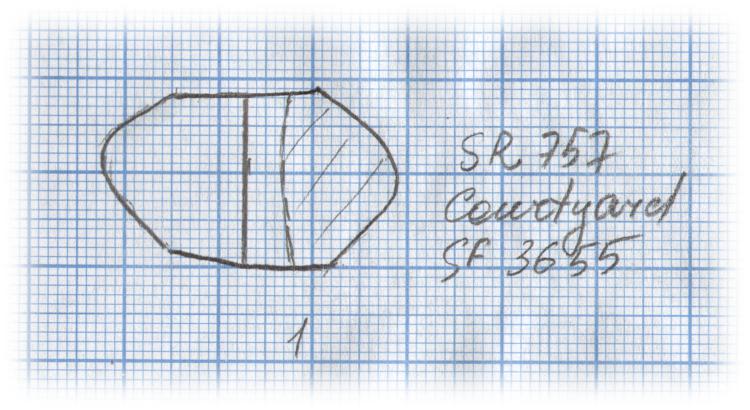 SR 757
Courtyard
SF 3655
1